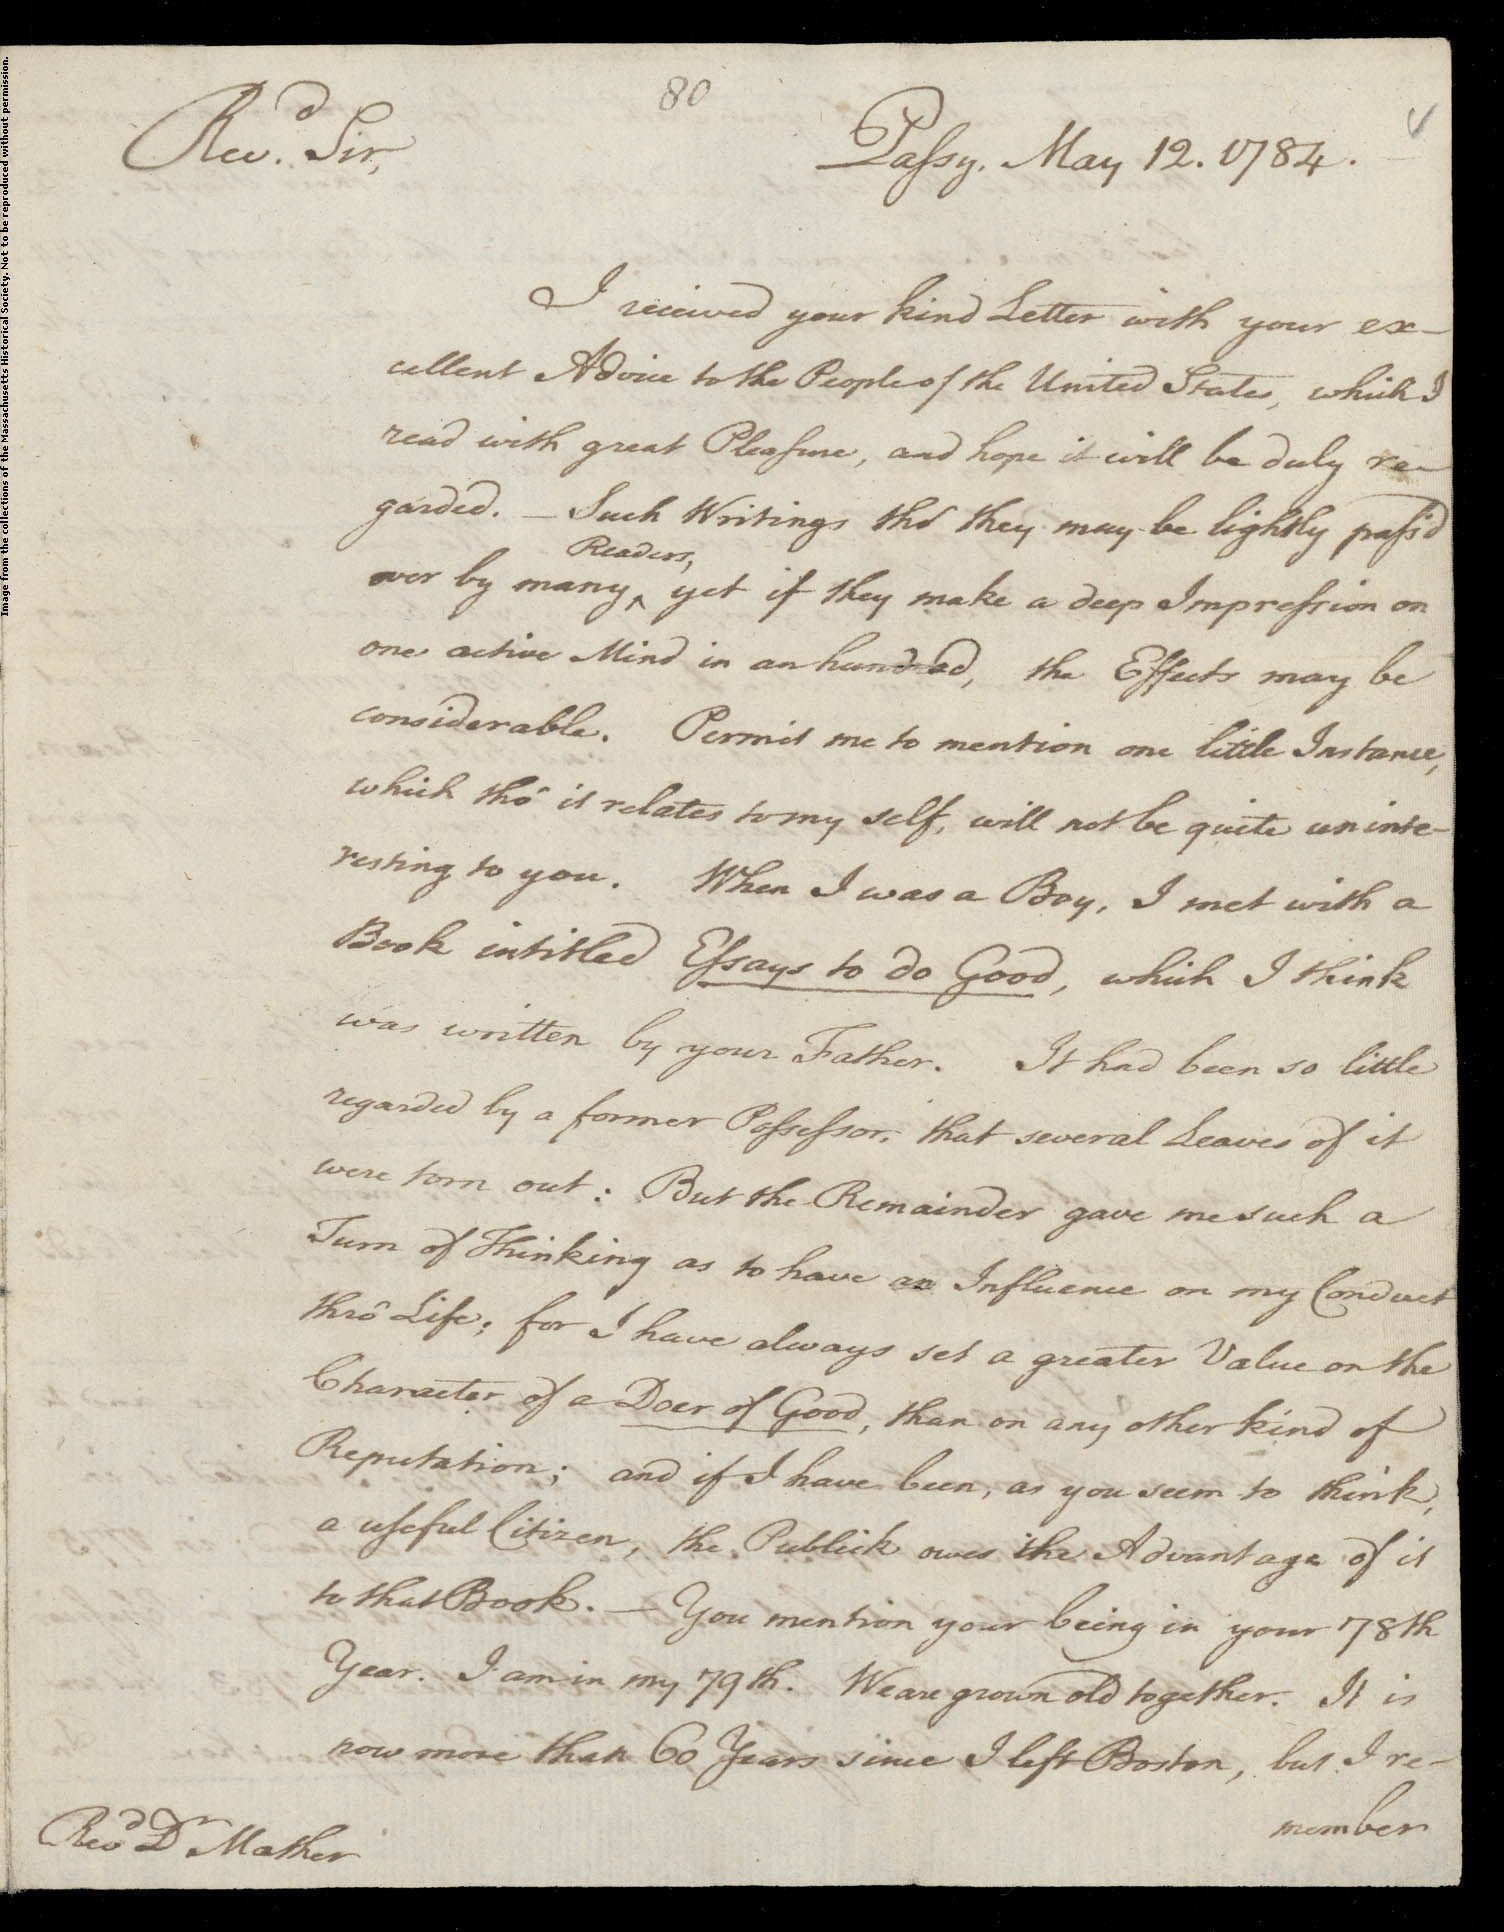 Image from the collections of the Massachusetts Historical Society. Not to be reproduced without permission.
80
Revd. Sir,
Passy, May 12. 1784.
I received your kind Letter with your ex-
cellent Advice to the People of the United States, which I
read with great Pleasure, and hope it will be duly re-
garded. — Such Writings tho' they may be lightly pass'd
over by many Readers, yet if they make a deep Impression on
one active Mind in an hundred, the Effects may be
considerable. Permit me to mention one little Instance,
which tho' it relates to my self, will not be quite uninte-
resting to you. When I was a Boy, I met with a
Book intitled Essays to do Good, which I think
was written by your Father. It had been so little
regarded by a former Possessor, that several Leaves of it
were torn out: But the Remainder gave me such a
Turn of Thinking as to have an Influence on my Conduct
thro' Life; for I have always set a greater Value on the
Character of a Doer of Good, than on any other kind of
Reputation; and if I have been, as you seem to think,
a useful Citizen, the Publick owes the Advantage of it
to that Book. — You mention your being in your 78th
Year. I am in my 79th. We are grown old together. It is
now more than 60 Years since I left Boston, but I re-
member
Revd Dr Mather